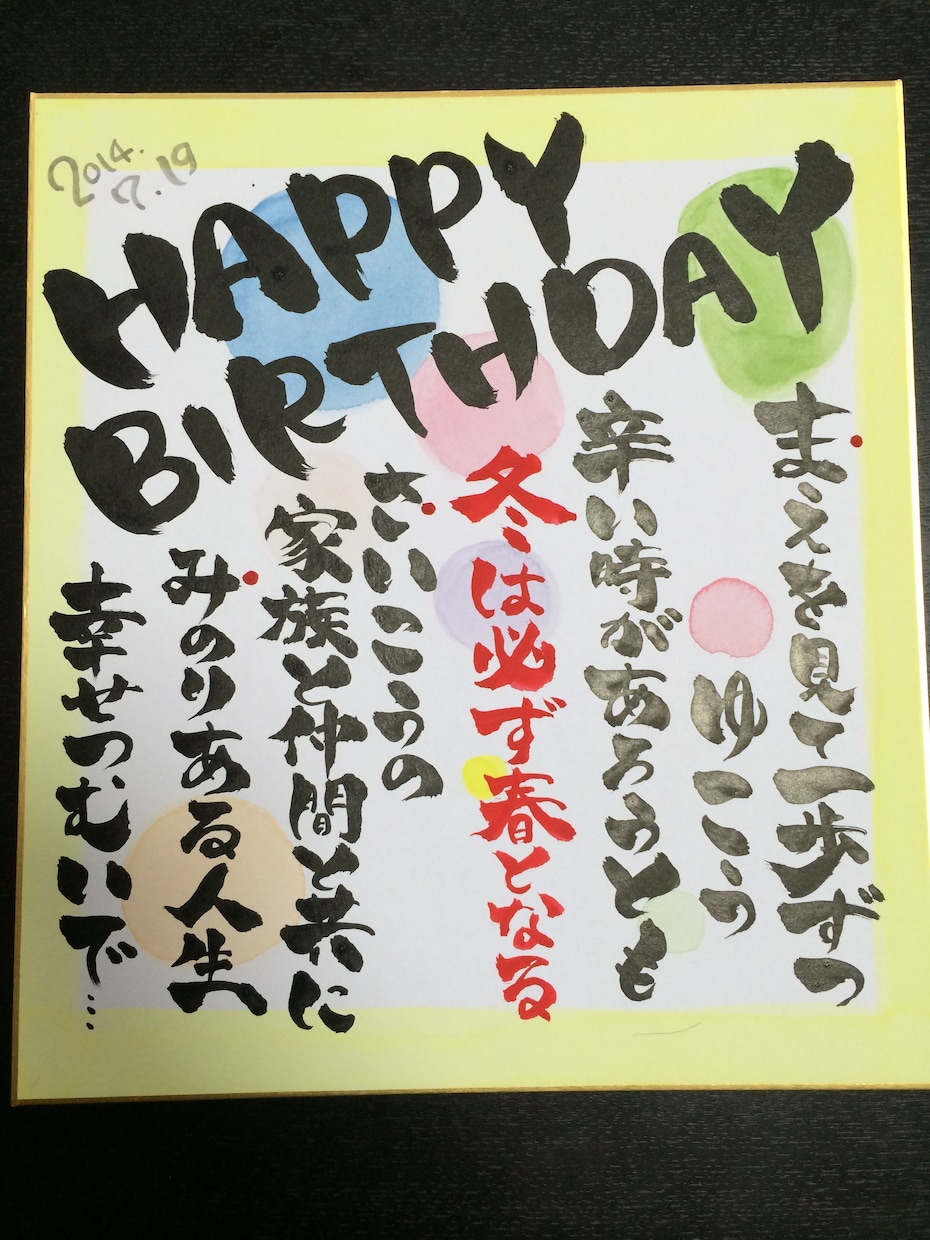 2014.
7.19
HAPPY
BIRTHDAY
まえを見て一歩ずつ
ゆこう
辛い時があろうとも
冬は必ず春となる
さいこうの
家族と仲間と共に
みのりある人生へ
幸せつむいで…